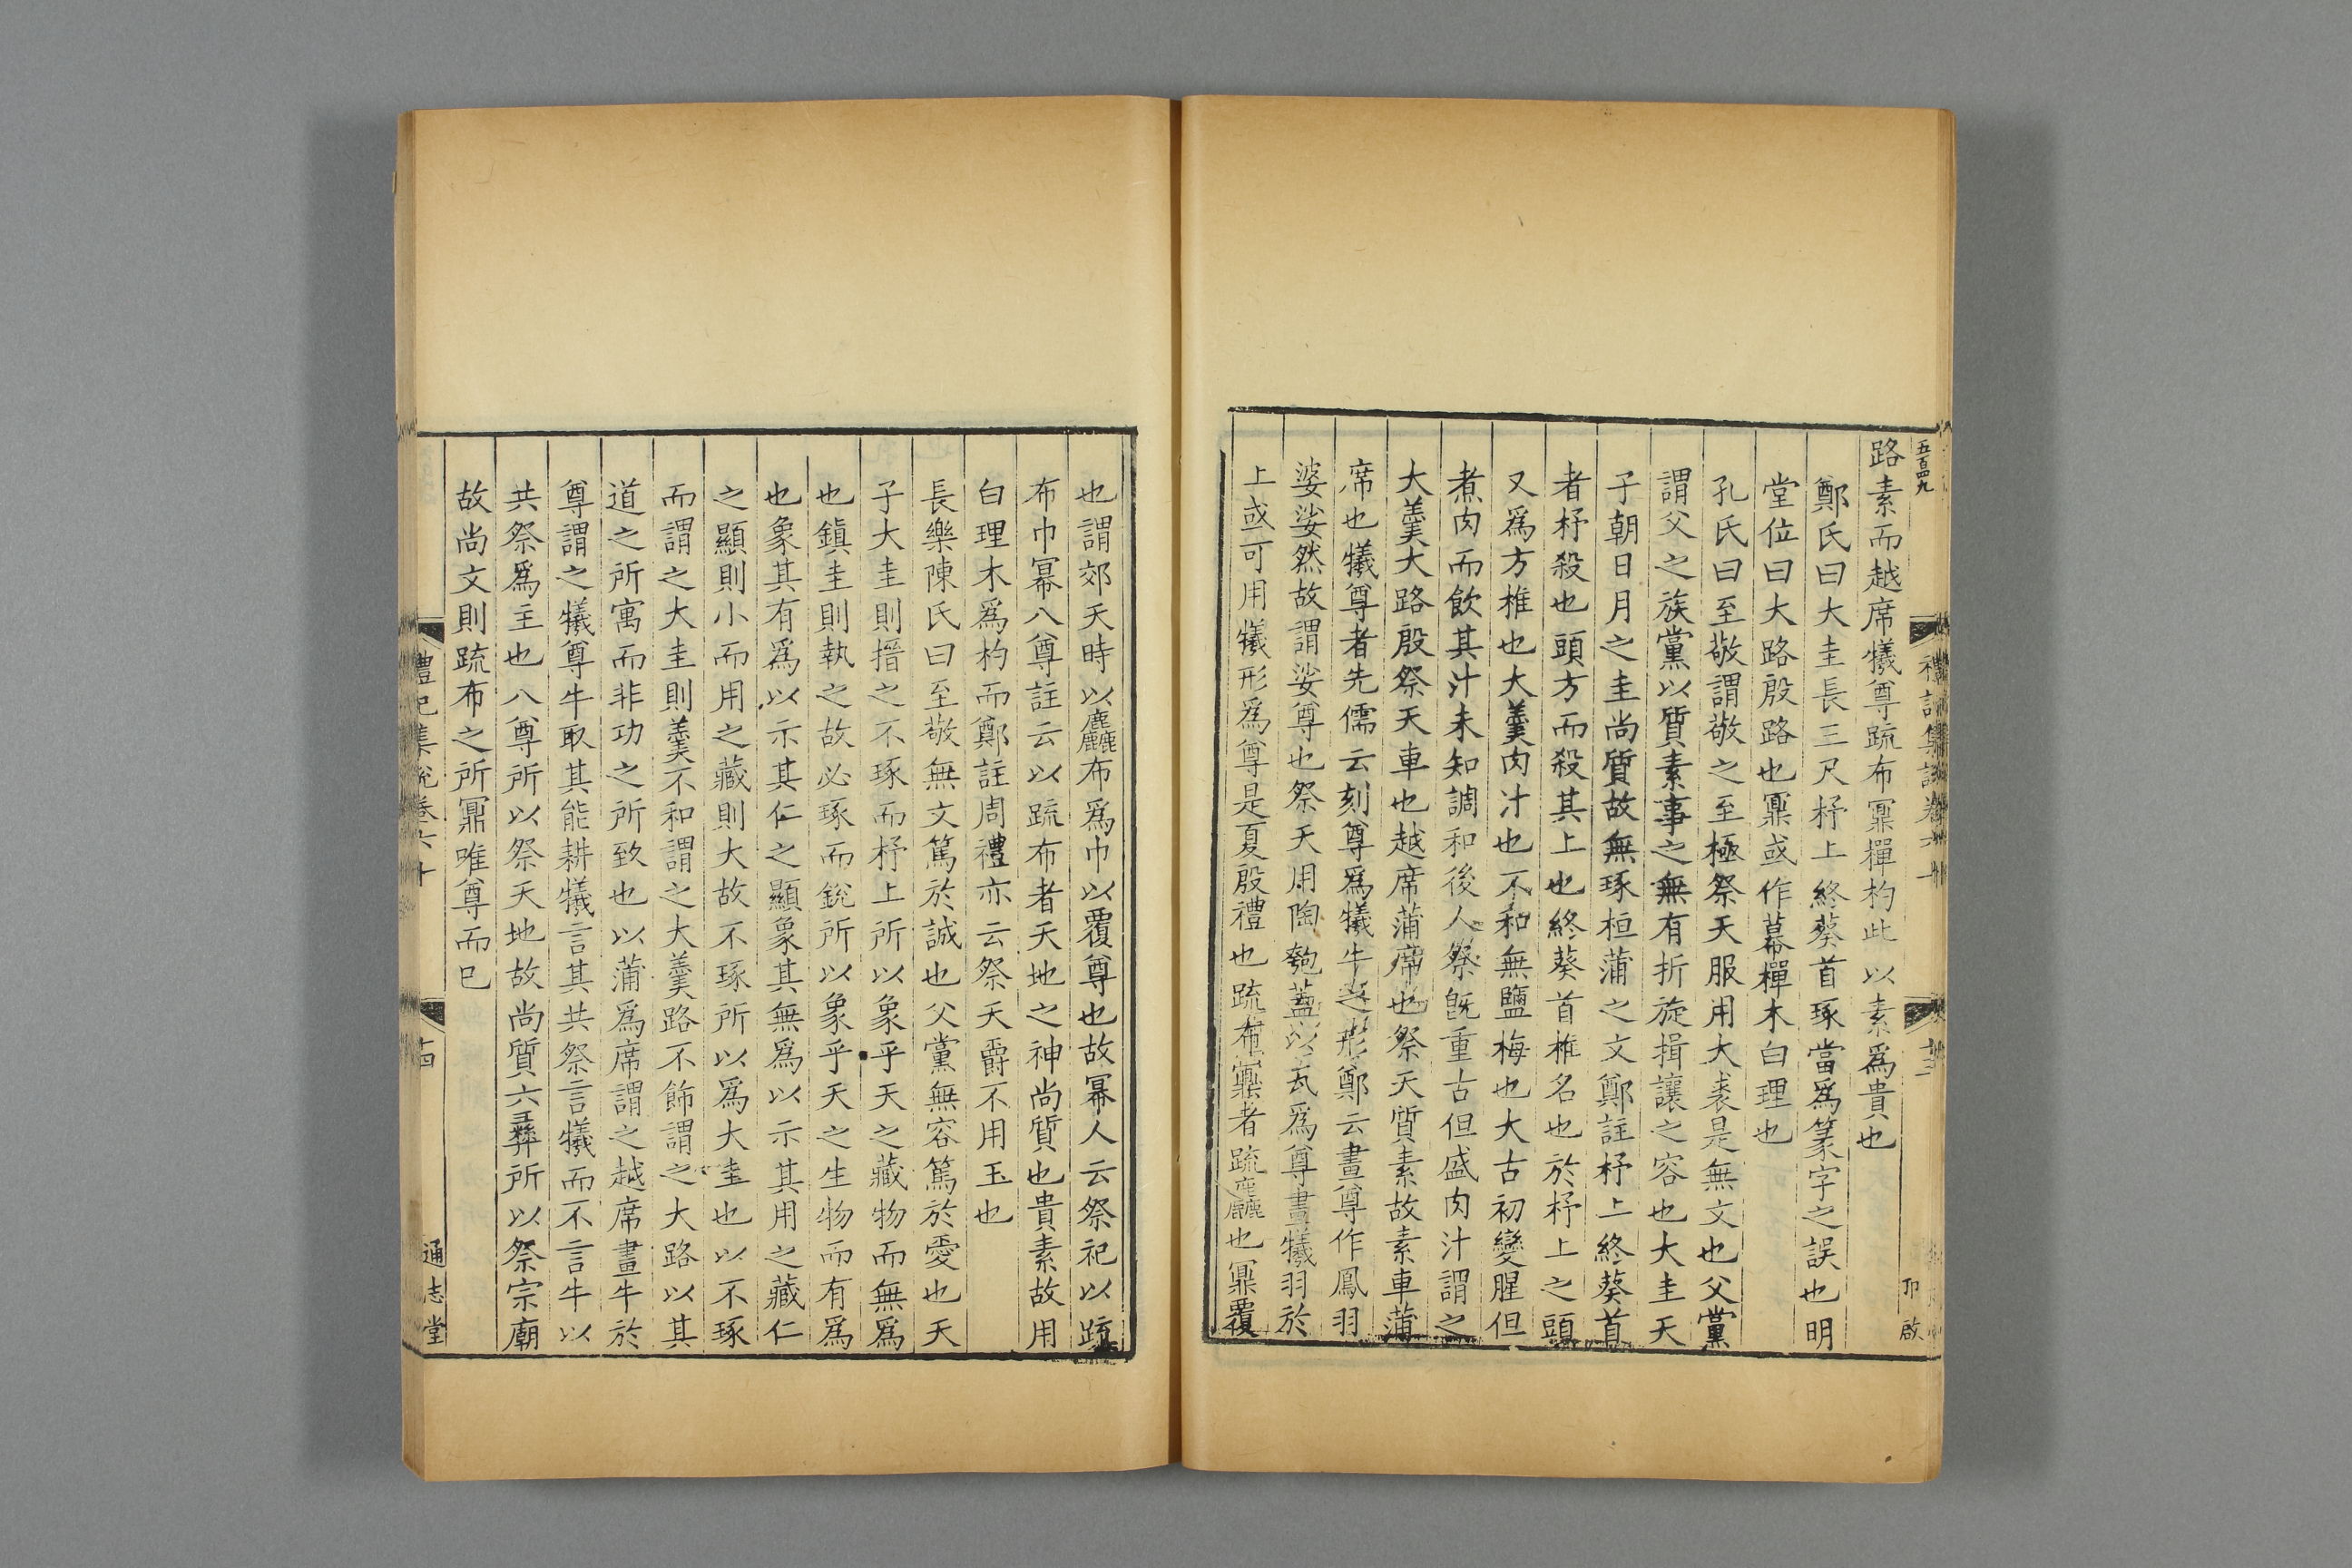 五百四九
路素而越席犧尊疏布鼏樿杓此以素爲貴也
鄭氏曰大圭長三尺杼上終葵首琢當爲篆字之誤也明
堂位曰大路殷路也鼏或作幕樿木白理也
孔氏曰至敬謂敬之至極祭天服用大裘是無文也父黨
謂父之族黨以質素事之無有折旋揖讓之容也大圭天
子朝日月之圭尚質故無琢桓蒲之文鄭註杼上終葵首
者杼殺也頭方而殺其上也終葵首椎名也於杼上之頭
又爲方椎也大羹肉汁也不和無鹽梅也大古初變腥但
煮肉而飲其汁未知調和後人祭旣重古但盛肉汁謂之
大羹大路殷祭天車也越席蒲席也祭天質素故素車蒲
席也犧尊者先儒云刻尊爲犧牛之形鄭云畫尊作鳳羽
婆娑然故謂娑尊也祭天用陶匏蓋以瓦爲尊畫犧羽於
上或可用犧形爲尊是夏殷禮也疏布鼏者疏麤也鼏覆
也謂郊天時以麤布爲巾以覆尊也故冪人云祭祀以疏
布巾冪八尊註云以疏布者天地之神尚質也貴素故用
白理木爲杓而鄭註周禮亦云祭天爵不用玉也
長樂陳氏曰至敬無文篤於誠也父黨無容篤於愛也天
子大圭則搢之不琢而杼上所以象乎天之藏物而無爲
也鎮圭則執之故必琢而銳所以象乎天之生物而有爲
也象其有爲以示其仁之顯象其無爲以示其用之藏仁
之顯則小而用之藏則大故不琢所以爲大圭也以不琢
而謂之大圭則羹不和謂之大羹路不飾謂之大路以其
道之所寓而非功之所致也以蒲爲席謂之越席畫牛於
尊謂之犧尊牛取其能耕犧言其共祭言犧而不言牛以
共祭爲主也八尊所以祭天地故尚質六彝所以祭宗廟
故尚文則疏布之所鼏唯尊而已
禮記集說卷六十
十四
通志堂